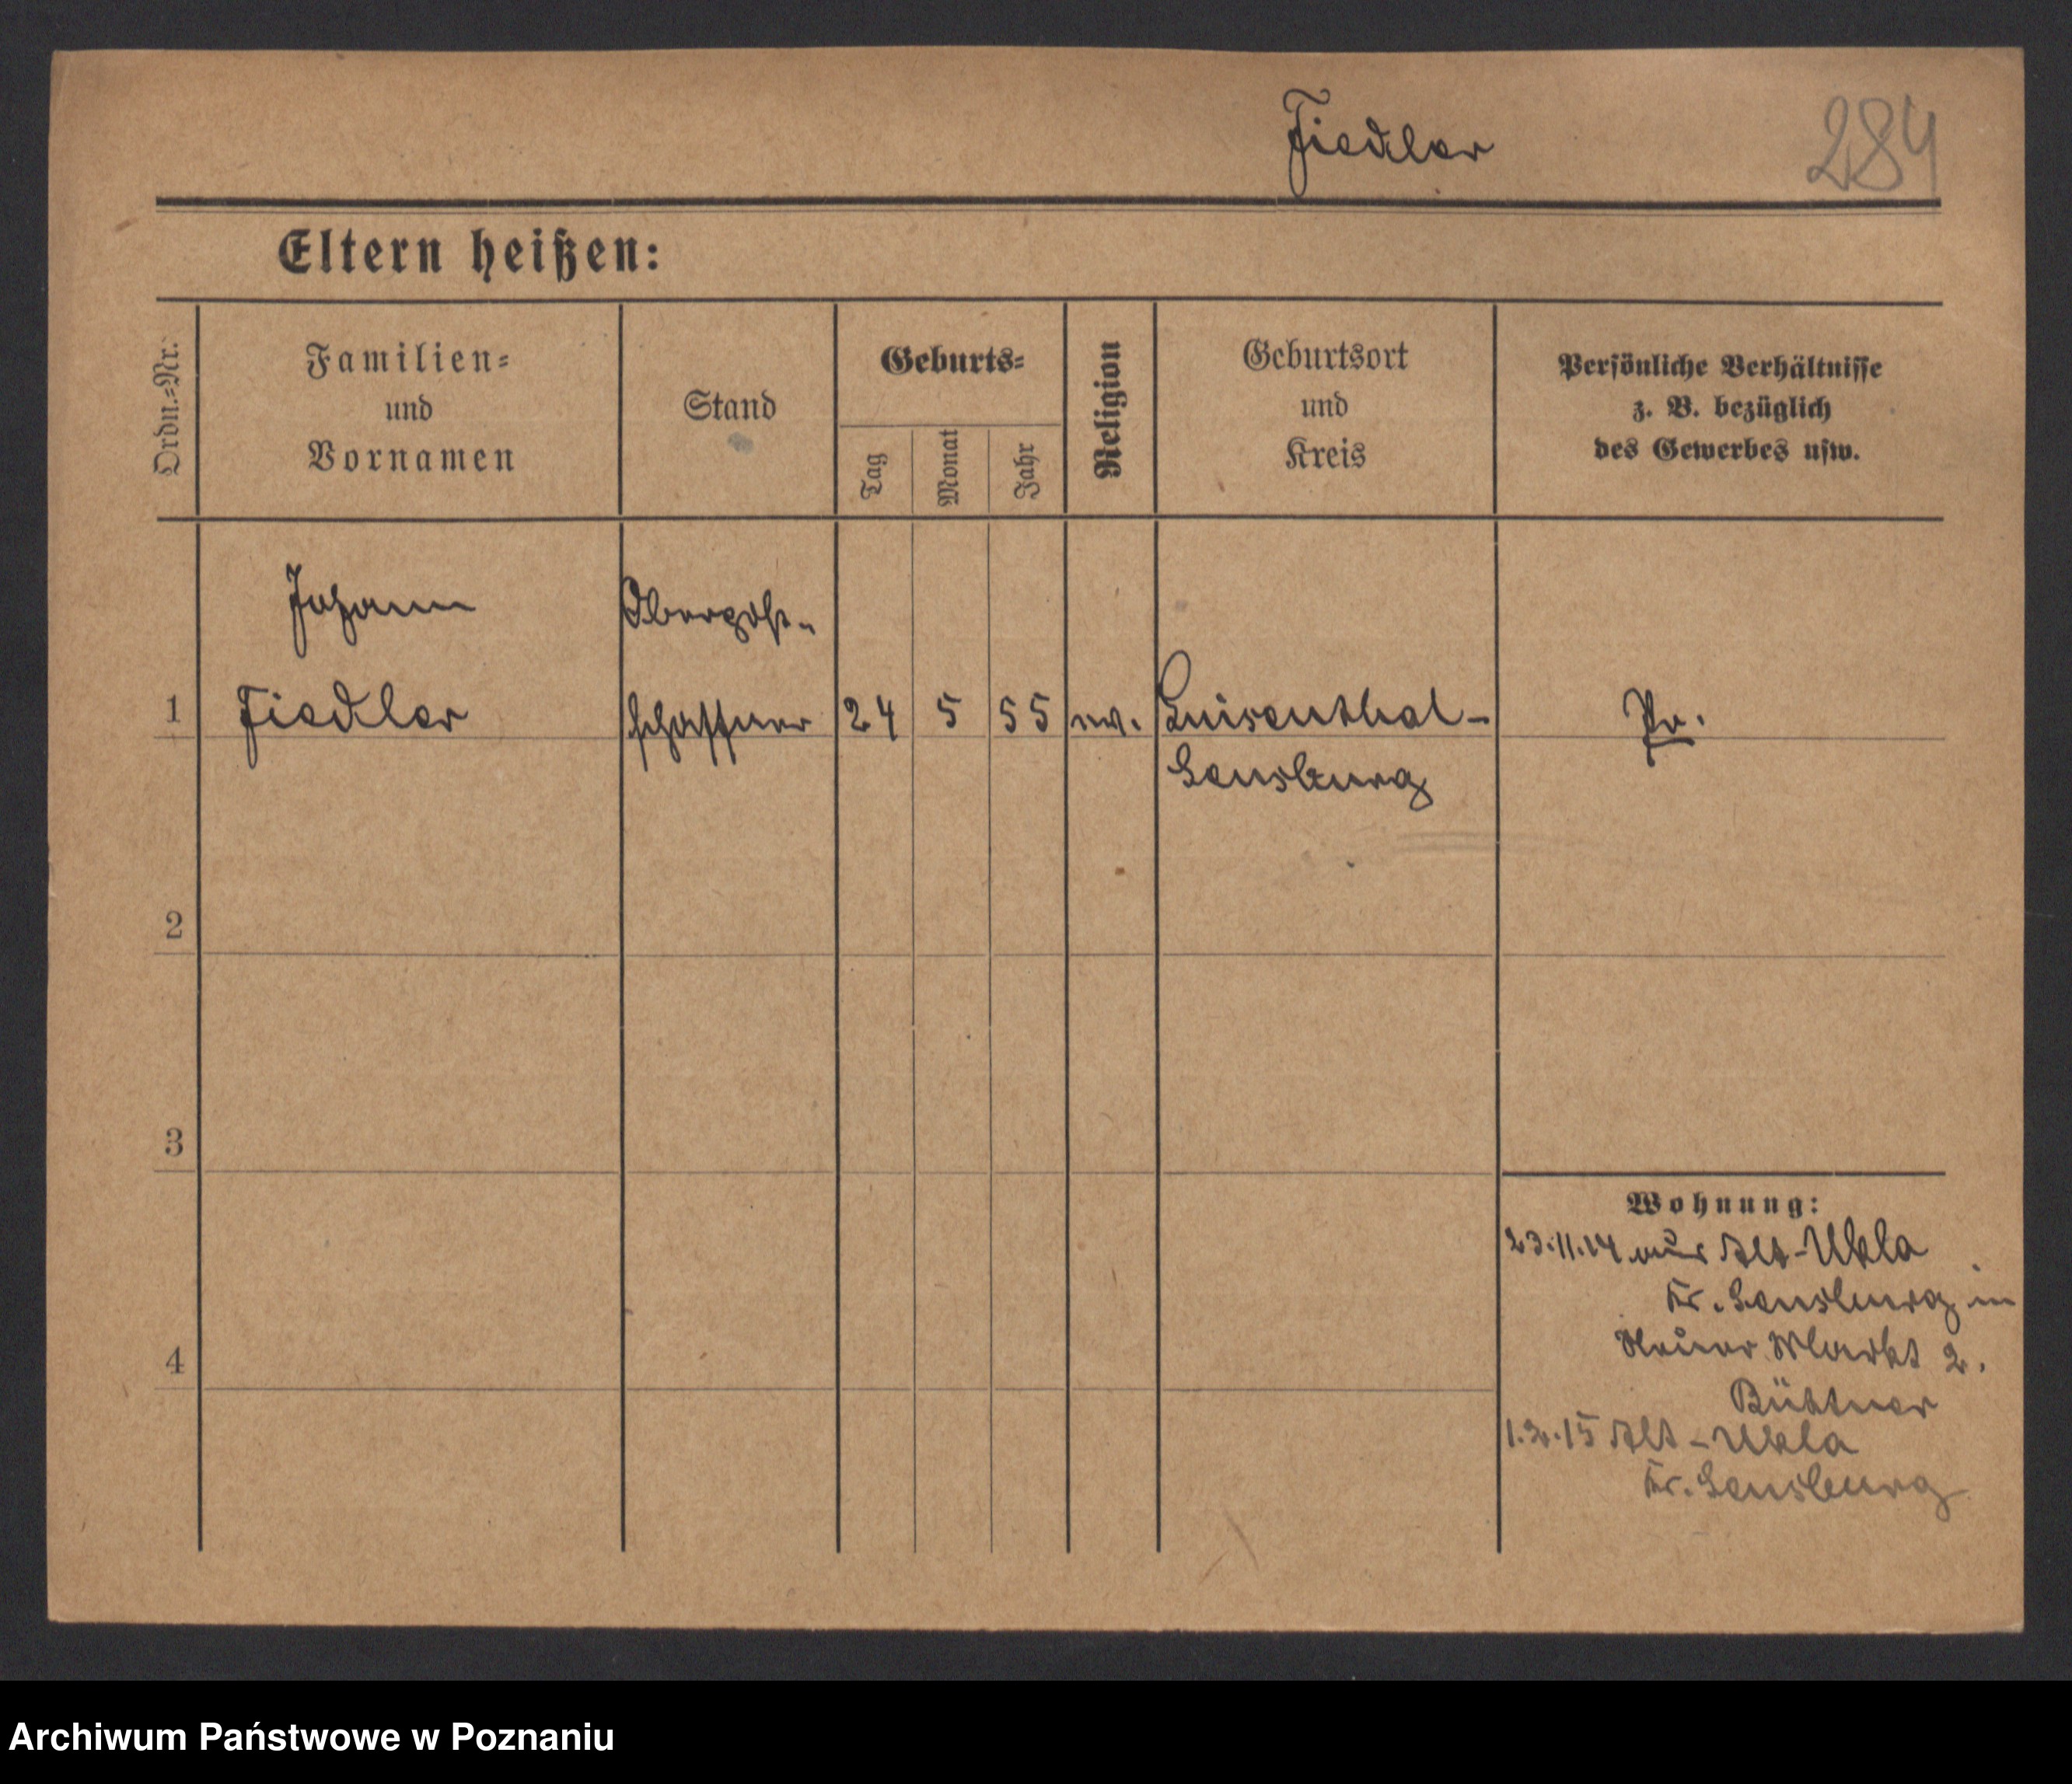 Fiedler
284
Eltern heißen:
Ordn.=Nr.
Familien=
und
Vornamen
Stand
Geburts=
Tag
Monat
Jahr
Religion
Geburtsort
und
Kreis
Persönliche Verhältnisse
z. B. bezüglich
des Gewerbes usw.
Johann
Oberpost-
1
Fiedler
schaffner
24
5
55
ev.
Luisenthal-
Pr.
Sensburg
2
3
4
Wohnung:
23.11.14 aus Alt-Ukta
Kr. Sensburg in
Neuer Markt 2.
Büttner
1.2.15 Alt-Ukta
Kr. Sensburg
Archiwum Państwowe w Poznaniu